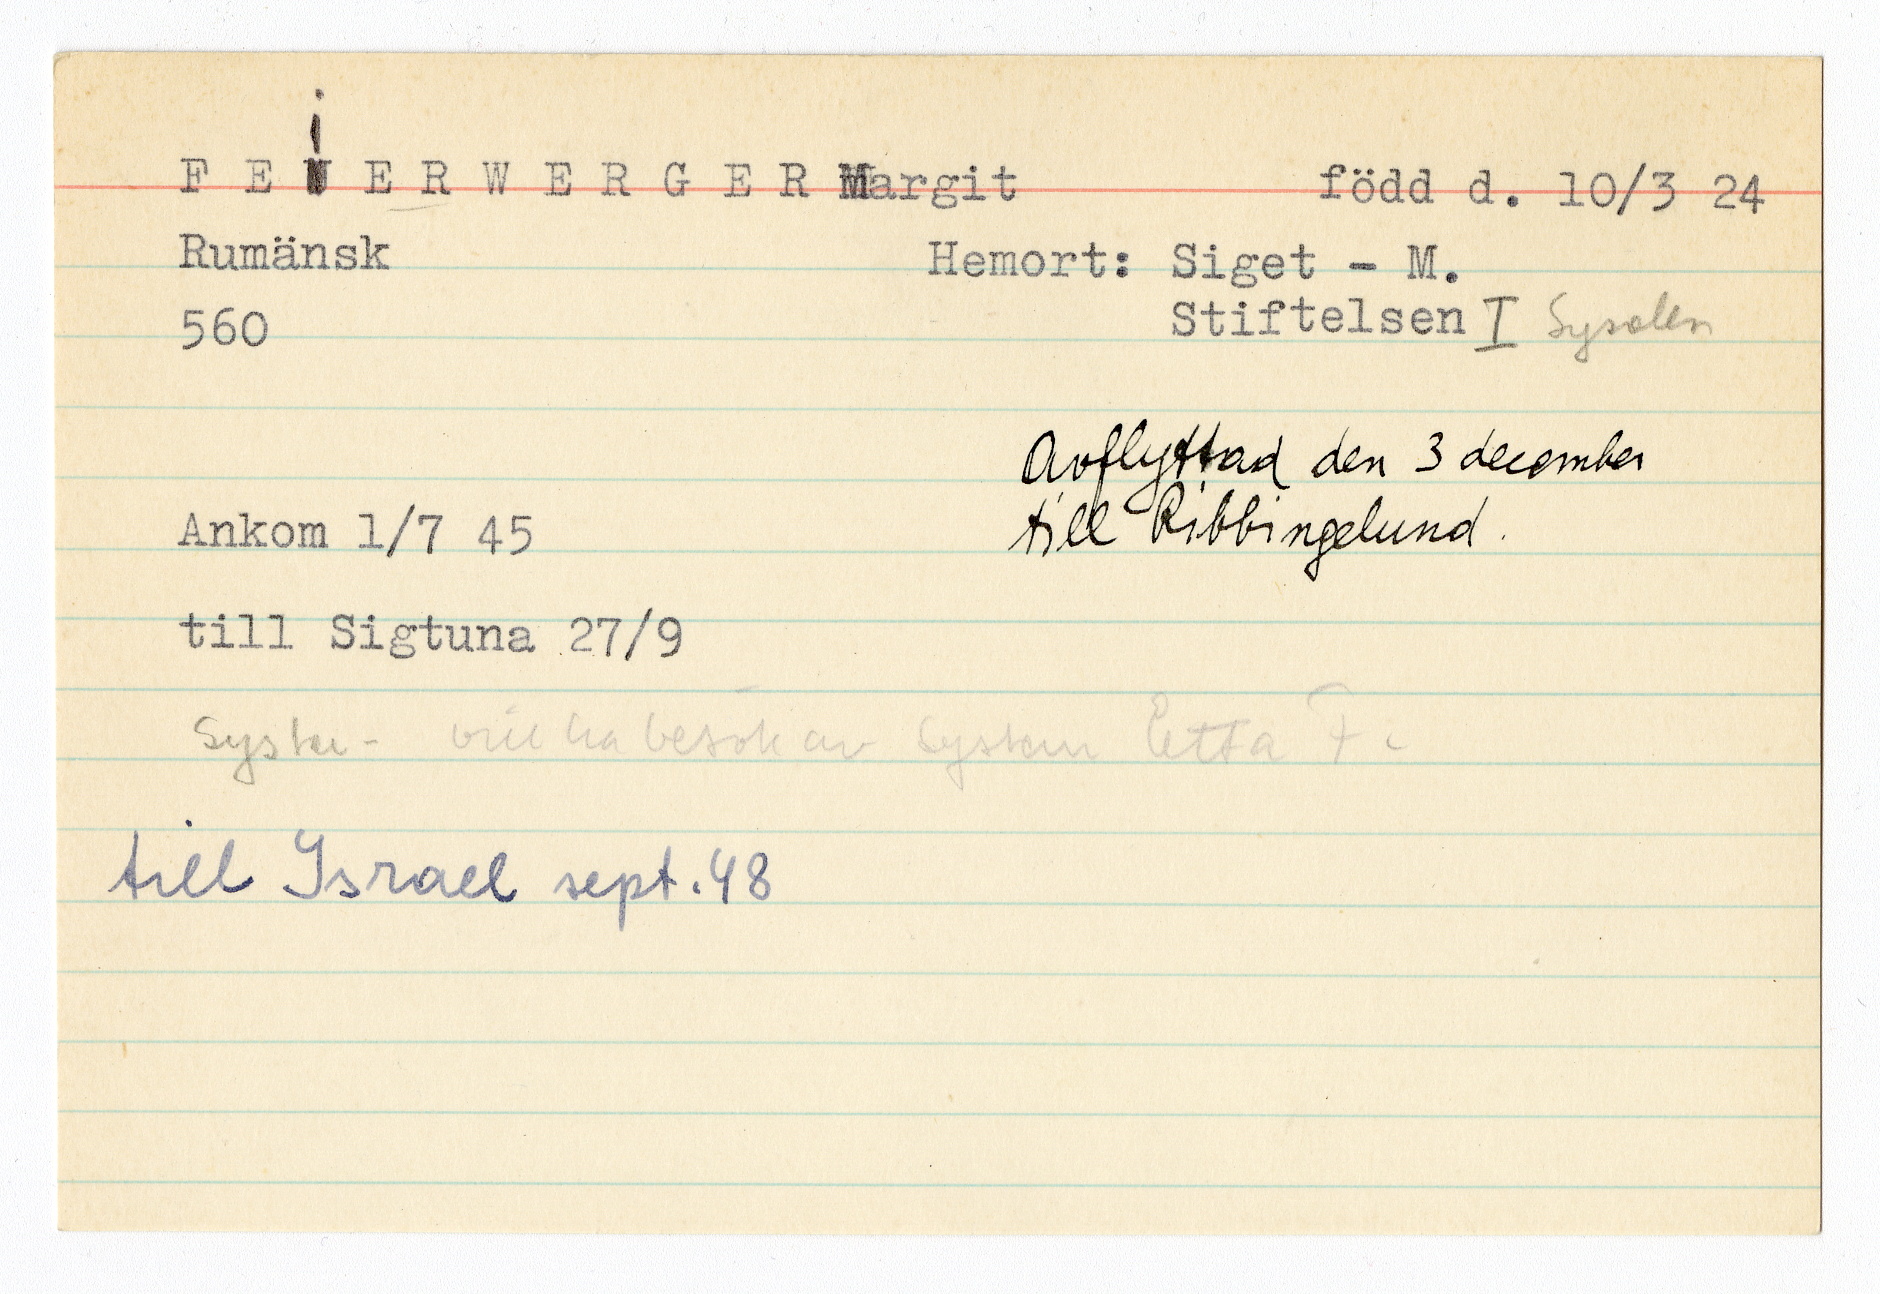 F E i E R W E R G E R Margit född d. 10/3 24
Rumänsk Hemort: Siget - M.
560 Stiftelsen I Sysalen
Avflyttad den 3 december
till Ribbingelund.
Ankom 1/7 45
till Sigtuna 27/9
Syster - vill ha besök av system Etta F.
till Israel sept. 48